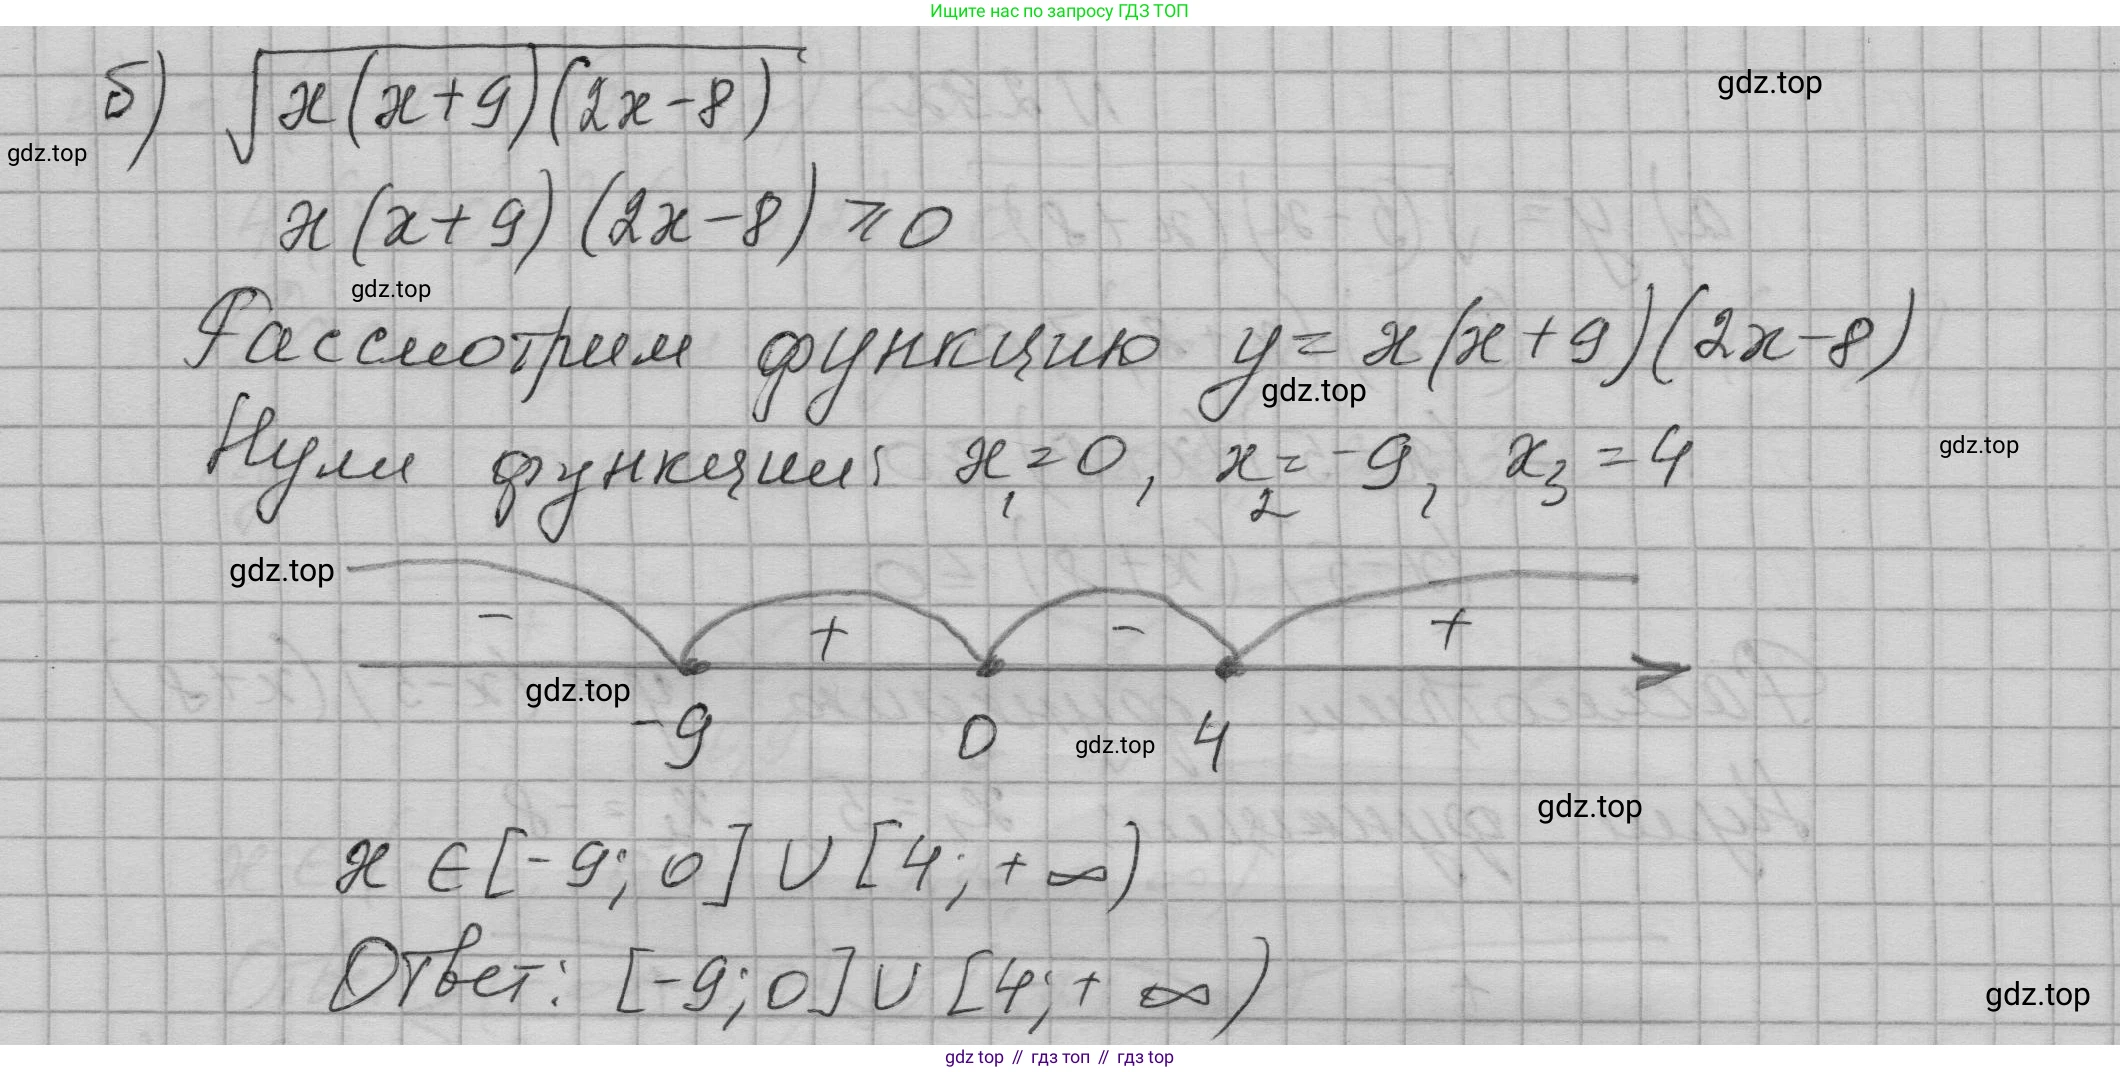 Ищите нас по запросу ГДЗ ТОП
б) √x(x+9)(2x-8)
gdz.top
gdz.top
x(x+9)(2x-8)⩾0
gdz.top
Рассмотрим функцию y=x(x+9)(2x-8)
gdz.top
Нули функции: x₁=0, x₂=-9, x₃=4
gdz.top
gdz.top
- + - +
gdz.top
-9 0 4
gdz.top
gdz.top
x ∈ [-9; 0] ∪ [4; +∞)
Ответ: [-9; 0] ∪ [4; +∞)
gdz.top
gdz top // гдз топ // гдз top